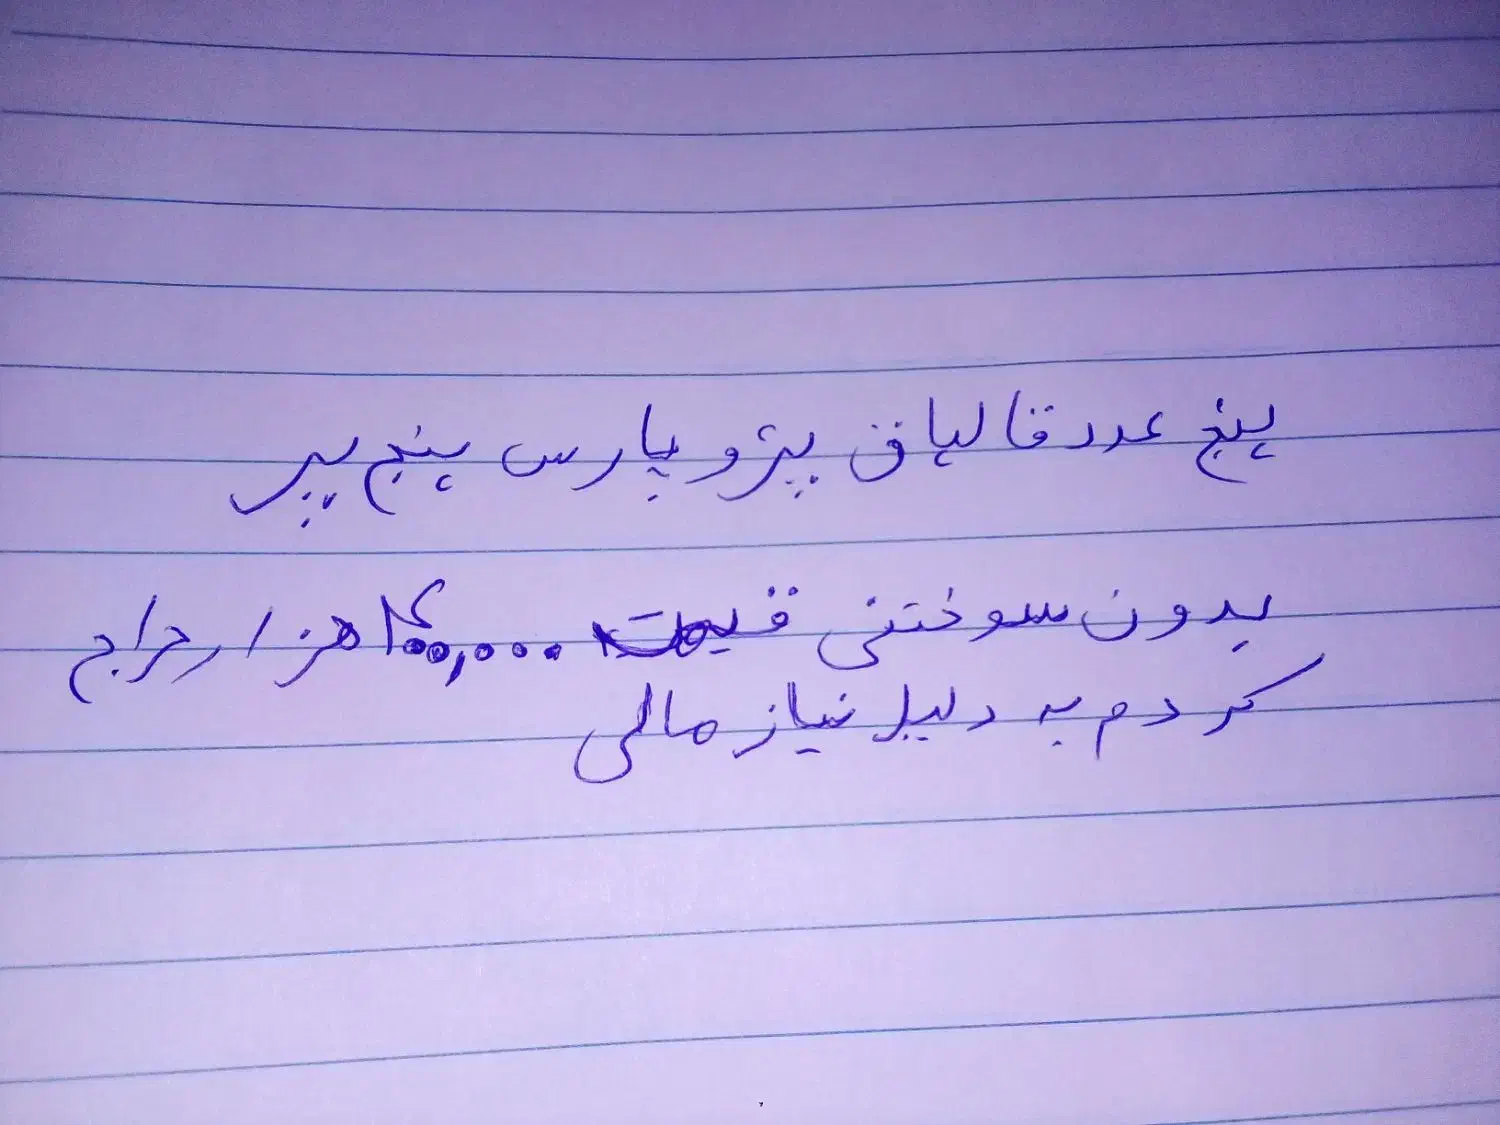 پنج عدد قالپاق پژو پارس پنج پر
بدون سوختنی قیمت هزار حراج
کردم به دلیل نیاز مالی